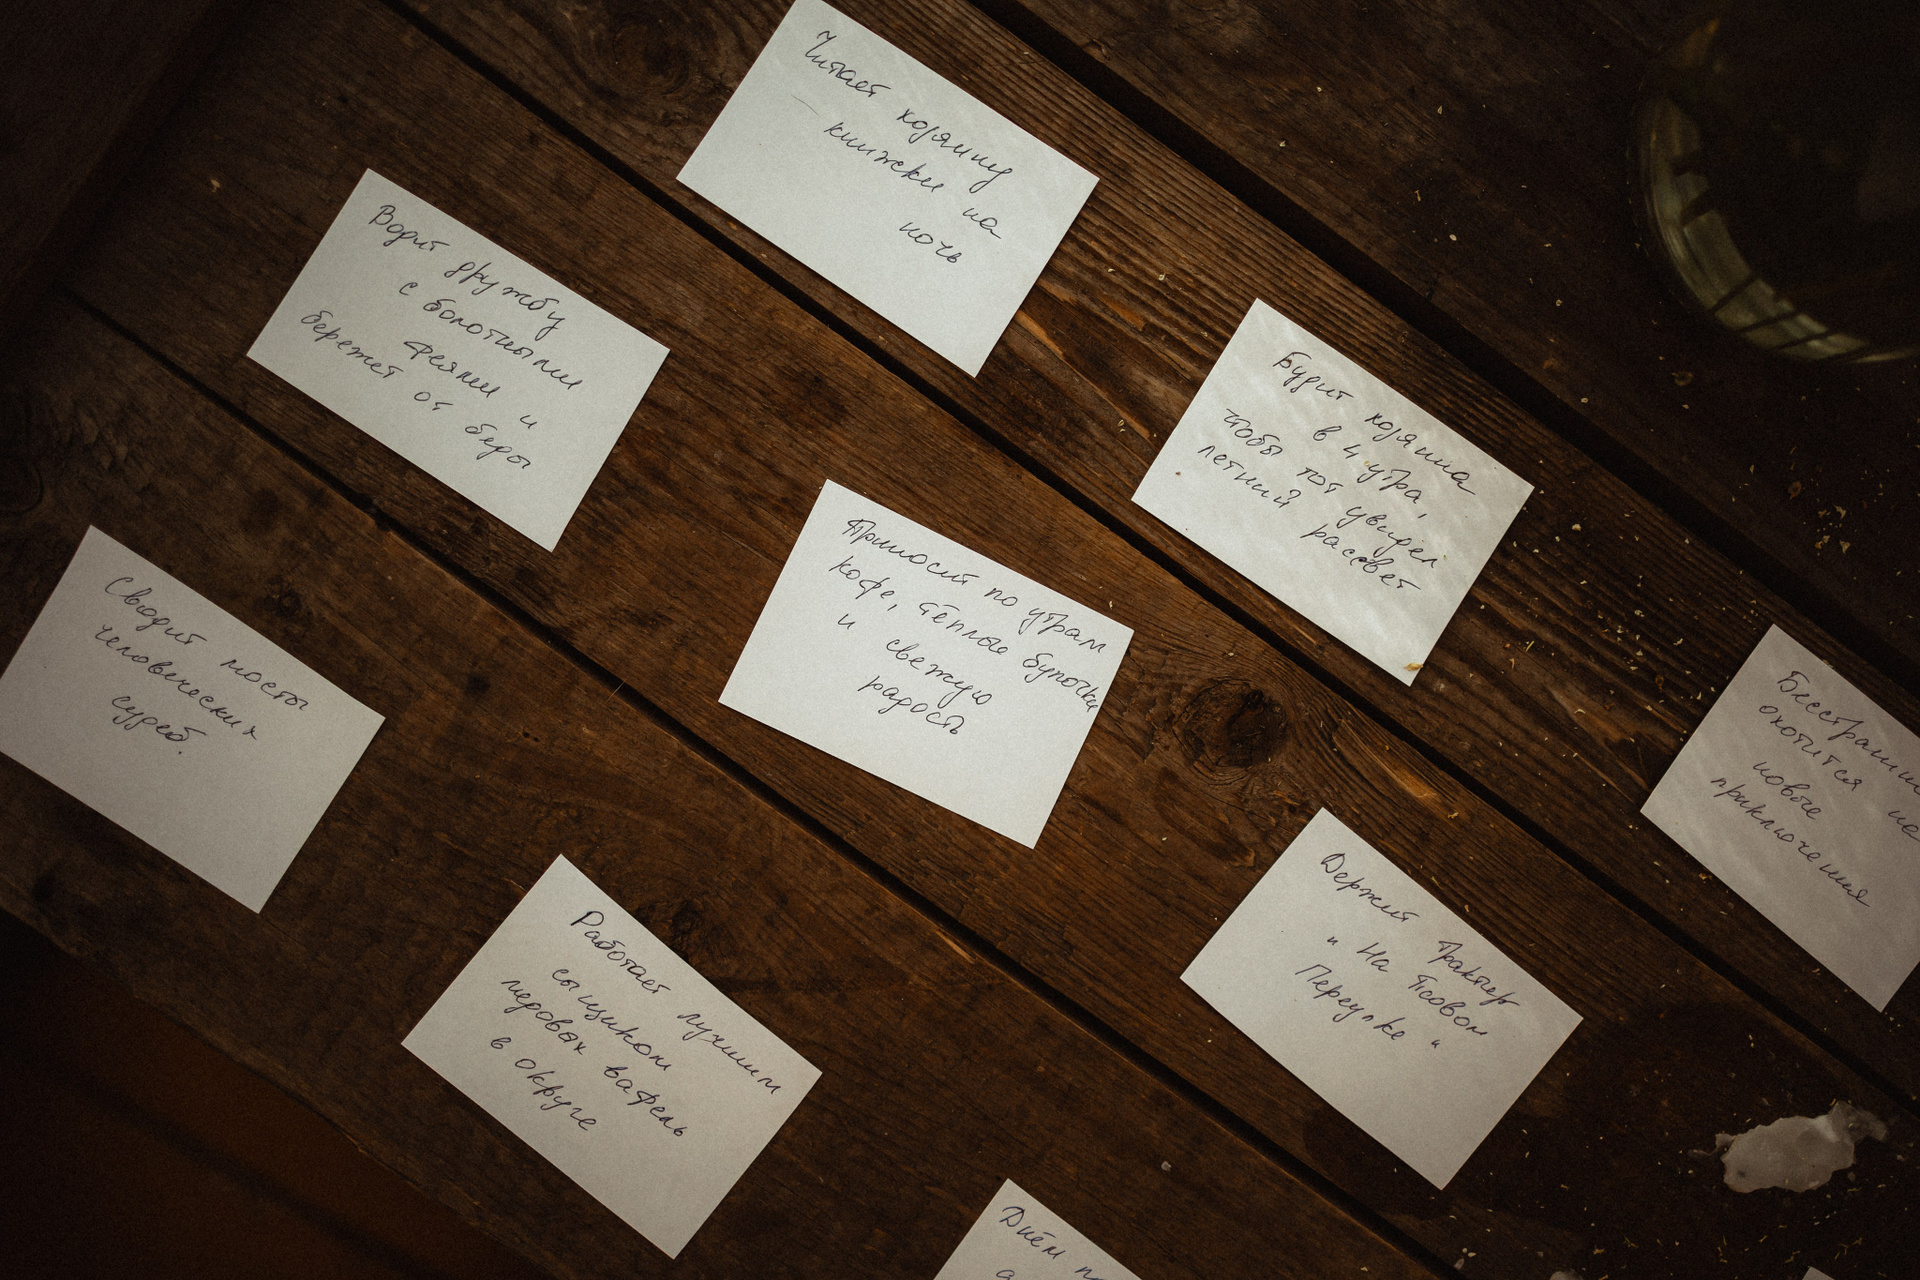 Читает хозяину
книжки на
ночь
Водит дружбу
с болотными
феями и
бережет от беды
Будит хозяина
в 4 утра,
чтобы тот увидел
летний рассвет
Приносит по утрам
кофе, тёплые булочки
и свежую
радость
Сводит мосты
человеческих
судеб.
Бесстрашно
охотится на
новые
приключения
Держит трактир
"На Псовом
Переулке"
Работает лучшим
сыщиком
медовых вафель
в округе
Днём